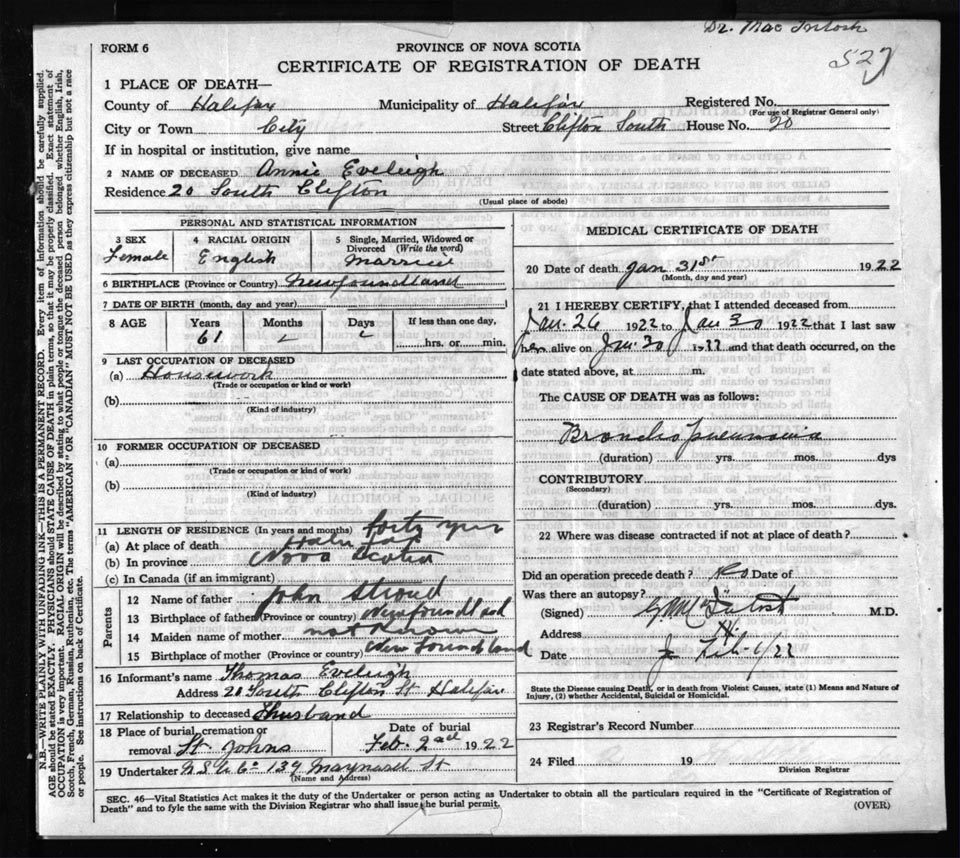 Dr. Mac Intosh
527
FORM 6
PROVINCE OF NOVA SCOTIA
CERTIFICATE OF REGISTRATION OF DEATH
N.B.—WRITE PLAINLY WITH UNFADING INK—THIS IS A PERMANENT RECORD. Every item of information should be carefully supplied.
AGE should be stated EXACTLY. PHYSICIANS should STATE CAUSE OF DEATH in plain terms, so that it may be properly classified. Exact statement of
OCCUPATION is very important. RACIAL ORIGIN will be described by stating to what people or tongue the deceased person belonged whether English, Irish,
Scotch, French, German, Russian, Ruthenian, etc. The terms "AMERICAN" OR "CANADIAN" MUST NOT BE USED as they express citizenship but not a race
or people. See instructions on back of Certificate.
1 PLACE OF DEATH—
County of Halifax Municipality of Halifax Registered No.
(For use of Registrar General only)
City or Town City Street Clifton South House No. 20
If in hospital or institution, give name
2 NAME OF DECEASED Annie Eveleigh
Residence 20 South Clifton
(Usual place of abode)
PERSONAL AND STATISTICAL INFORMATION
3 SEX Female
4 RACIAL ORIGIN English
5 Single, Married, Widowed or Divorced (Write the word) Married
6 BIRTHPLACE (Province or Country) Newfoundland
7 DATE OF BIRTH (month, day and year)
8 AGE Years 61 Months Days If less than one day, hrs. or min.
9 LAST OCCUPATION OF DECEASED
(a) Housework
(Trade or occupation or kind or work)
(b)
(Kind of industry)
10 FORMER OCCUPATION OF DECEASED
(a)
(Trade or occupation or kind or work)
(b)
(Kind of industry)
11 LENGTH OF RESIDENCE (In years and months) forty years
(a) At place of death Halifax
(b) In province Nova Scotia
(c) In Canada (if an immigrant)
Parents
12 Name of father John Stroud
13 Birthplace of father (Province or country) Newfoundland
14 Maiden name of mother not Known
15 Birthplace of mother (Province or country) Newfoundland
16 Informant's name Thomas Eveleigh
Address 20 South Clifton St Halifax
17 Relationship to deceased Husband
18 Place of burial, cremation or removal St. Johns
Date of burial Feb. 2nd 1922
19 Undertaker N S U Co 139 Maynard St
(Name and Address)
MEDICAL CERTIFICATE OF DEATH
20 Date of death Jan 31st 1922
(Month, day and year)
21 I HEREBY CERTIFY, that I attended deceased from
Jan. 26 1922 to Jan 30 1922 that I last saw
her alive on Jan. 30 1922 and that death occurred, on the
date stated above, at m.
The CAUSE OF DEATH was as follows:
Broncho pneumonia
(duration) yrs. mos. dys
CONTRIBUTORY
(Secondary)
(duration) yrs. mos. dys
22 Where was disease contracted if not at place of death?
Did an operation precede death? No Date of
Was there an autopsy?
(Signed) McIntosh M.D.
Address
Date Feb. 1/22
State the Disease causing Death, or in death from Violent Causes, state (1) Means and Nature of
Injury, (2) whether Accidental, Suicidal or Homicidal.
23 Registrar's Record Number
24 Filed 19
Division Registrar
SEC. 46—Vital Statistics Act makes it the duty of the Undertaker or person acting as Undertaker to obtain all the particulars required in the "Certificate of Registration of
Death" and to fyle the same with the Division Registrar who shall issue the burial permit.
(OVER)